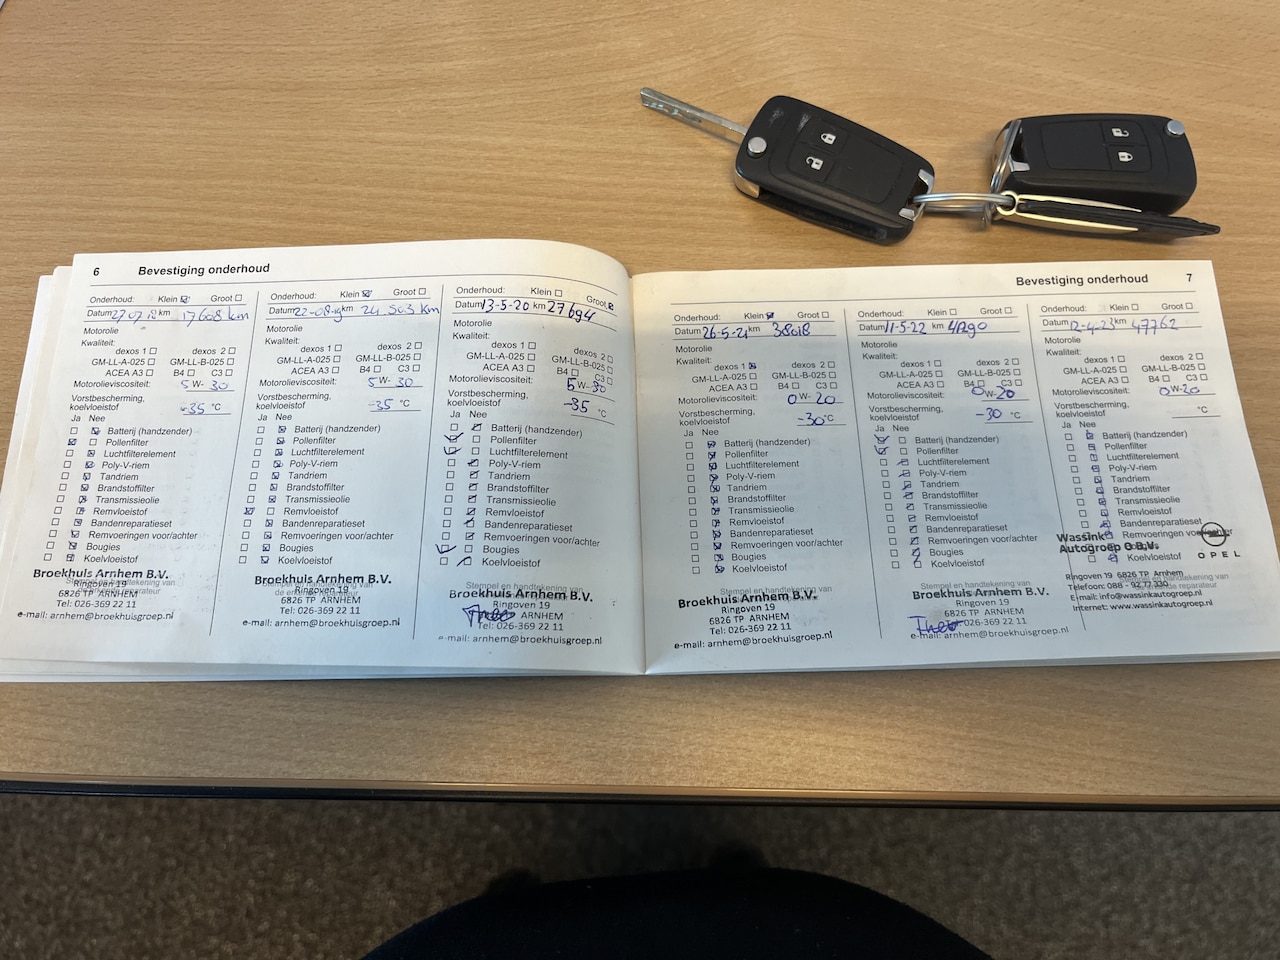 6 Bevestiging onderhoud
Onderhoud: Klein Groot
Datum 17608 km
Motorolie
Kwaliteit:
dexos 1 dexos 2
GM-LL-A-025 GM-LL-B-025
ACEA A3 B4 C3
Motorolieviscositeit: 5 W- 30
Vorstbescherming,
koelvloeistof -35
Ja Nee
Batterij (handzender)
Pollenfilter
Luchtfilterelement
Poly-V-riem
Tandriem
Brandstoffilter
Transmissieolie
Remvloeistof
Bandenreparatieset
Remvoeringen voor/achter
Bougies
Koelvloeistof
Broekhuis Arnhem B.V.
Ringoven 19
6826 TP ARNHEM
Tel: 026-369 22 11
e-mail: arnhem@broekhuisgroep.nl
Onderhoud: Klein Groot
Datum 22-08-19 km 24 503 km
Motorolie
Kwaliteit:
dexos 1 dexos 2
GM-LL-A-025 GM-LL-B-025
ACEA A3 B4 C3
Motorolieviscositeit: 5 W- 30
Vorstbescherming,
koelvloeistof -35 °C
Ja Nee
Batterij (handzender)
Pollenfilter
Luchtfilterelement
Poly-V-riem
Tandriem
Brandstoffilter
Transmissieolie
Remvloeistof
Bandenreparatieset
Remvoeringen voor/achter
Bougies
Koelvloeistof
Stempel en handtekening van
Broekhuis Arnhem B.V.
Ringoven 19
6826 TP ARNHEM
Tel: 026-369 22 11
e-mail: arnhem@broekhuisgroep.nl
Onderhoud: Klein Groot
Datum 13-5-20 km 27694
Motorolie
Kwaliteit:
dexos 1 dexos 2
GM-LL-A-025 GM-LL-B-025
ACEA A3 B4 C3
Motorolieviscositeit: 5 W- 30
Vorstbescherming,
koelvloeistof -35 °C
Ja Nee
Batterij (handzender)
Pollenfilter
Luchtfilterelement
Poly-V-riem
Tandriem
Brandstoffilter
Transmissieolie
Remvloeistof
Bandenreparatieset
Remvoeringen voor/achter
Bougies
Koelvloeistof
Stempel en handtekening van
Broekhuis Arnhem B.V.
Ringoven 19
6826 TP ARNHEM
Tel: 026-369 22 11
e-mail: arnhem@broekhuisgroep.nl
Bevestiging onderhoud 7
Onderhoud: Klein Groot
Datum 26-5-21 km 38018
Motorolie
Kwaliteit:
dexos 1 dexos 2
GM-LL-A-025 GM-LL-B-025
ACEA A3 B4 C3
Motorolieviscositeit: 0 W- 20
Vorstbescherming,
koelvloeistof -30 °C
Ja Nee
Batterij (handzender)
Pollenfilter
Luchtfilterelement
Poly-V-riem
Tandriem
Brandstoffilter
Transmissieolie
Remvloeistof
Bandenreparatieset
Remvoeringen voor/achter
Bougies
Koelvloeistof
Broekhuis Arnhem B.V.
Ringoven 19
6826 TP ARNHEM
Tel: 026-369 22 11
e-mail: arnhem@broekhuisgroep.nl
Onderhoud: Klein Groot
Datum 11-5-22 km
Motorolie
Kwaliteit:
dexos 1 dexos 2
GM-LL-A-025 GM-LL-B-025
ACEA A3 B4 C3
Motorolieviscositeit: 0 W- 20
Vorstbescherming,
koelvloeistof -30 °C
Ja Nee
Batterij (handzender)
Pollenfilter
Luchtfilterelement
Poly-V-riem
Tandriem
Brandstoffilter
Transmissieolie
Remvloeistof
Bandenreparatieset
Remvoeringen voor/achter
Bougies
Koelvloeistof
Stempel en handtekening van
Broekhuis Arnhem B.V.
Ringoven 19
6826 TP ARNHEM
Tel: 026-369 22 11
e-mail: arnhem@broekhuisgroep.nl
Onderhoud: Klein Groot
Datum 12-4-23 km 47762
Motorolie
Kwaliteit:
dexos 1 dexos 2
GM-LL-A-025 GM-LL-B-025
ACEA A3 B4 C3
Motorolieviscositeit: 0 W- 20
Vorstbescherming,
koelvloeistof °C
Ja Nee
Batterij (handzender)
Pollenfilter
Luchtfilterelement
Poly-V-riem
Tandriem
Brandstoffilter
Transmissieolie
Remvloeistof
Bandenreparatieset
Remvoeringen
Koelvloeistof
Wassink
Autogroep O B.V.
OPEL
Ringoven 19 6826 TP Arnhem
Telefoon: 088 - 92 77 330
E-mail: info@wassinkautogroep.nl
Internet: www.wassinkautogroep.nl